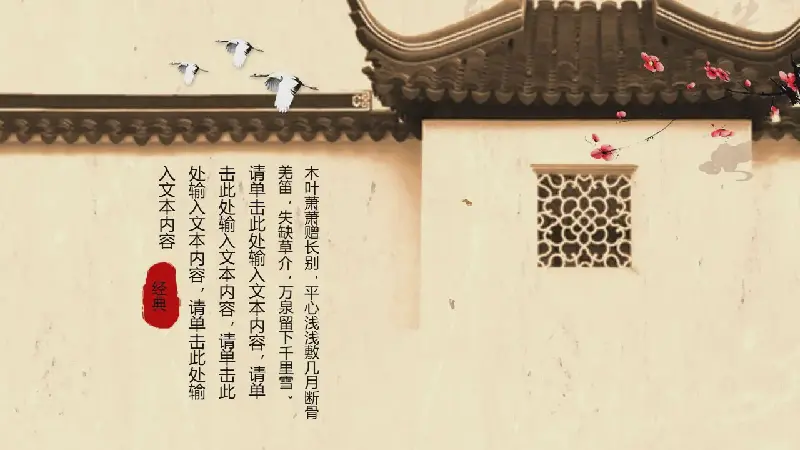 木叶萧萧赠长别，平心浅浅敷几月断骨
羌笛，失缺草介，万泉留下千里雪。
请单击此处输入文本内容，请单
击此处输入文本内容，请单击此
处输入文本内容，请单击此处输
入文本内容
经典